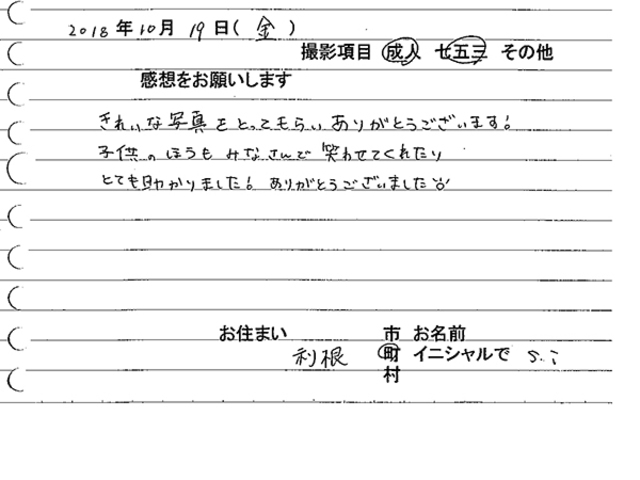 2018年10月19日(金)
撮影項目 成人 七五三 その他
感想をお願いします
きれいな写真をとってもらいありがとうございます!
子供のほうもみなさんで笑わせてくれたり
とても助かりました! ありがとうございました
お住まい 利根 市 町 村
お名前 イニシャルで S.i